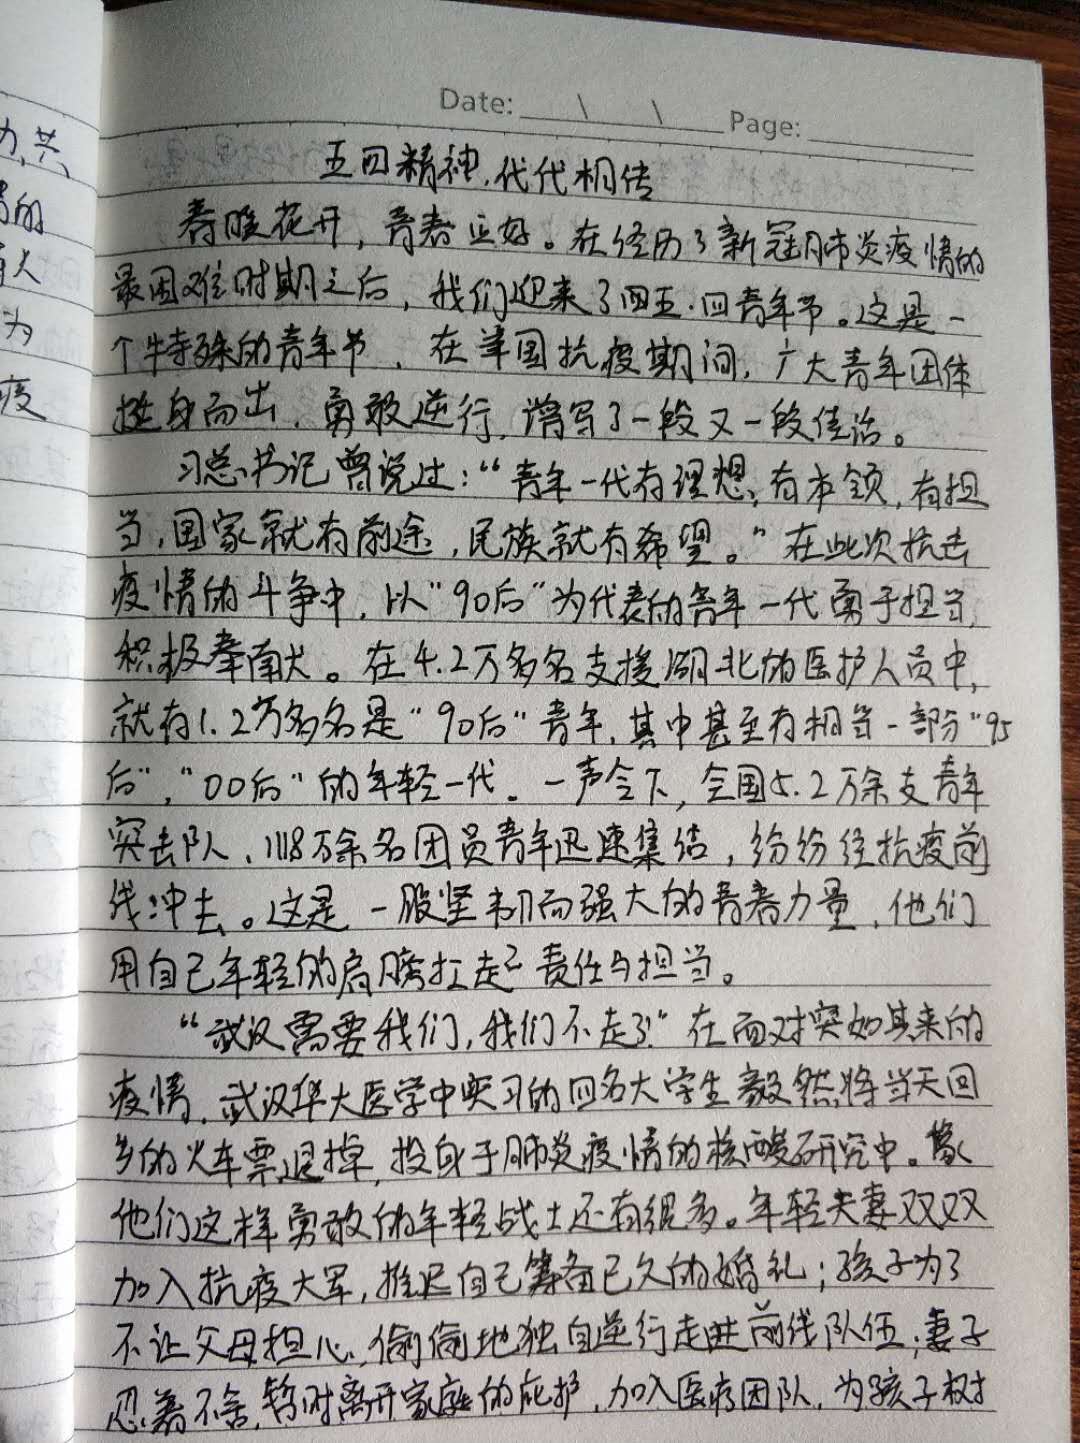 Date: \ \ Page:
五四精神,代代相传
春暖花开，青春正好。在经历了新冠肺炎疫情的
最困难时期之后，我们迎来了四五·四青年节。这是一
个特殊的青年节，在举国抗疫期间，广大青年团体
挺身而出，勇敢逆行，谱写了一段又一段佳话。
习总书记曾说过：“青年一代有理想，有本领，有担
当，国家就有前途，民族就有希望。”在此次抗击
疫情的斗争中，以“90后”为代表的青年一代勇于担当，
积极奉献。在4.2万多名支援湖北的医护人员中，
就有1.2万多名是“90后”青年，其中甚至有相当一部分“95
后”，“00后”的年轻一代。一声令下，全国5.2万余支青年
突击队、118万余名团员青年迅速集结，纷纷往抗疫前
线冲去。这是一股坚韧而强大的青春力量，他们
用自己年轻的肩膀扛起责任与担当。
“武汉需要我们，我们不走了”在面对突如其来的
疫情，武汉华大医学中实习的四名大学生毅然将当天回
乡的火车票退掉，投身于肺炎疫情的核酸研究中。象
他们这样勇敢的年轻战士还有很多。年轻夫妻双双
加入抗疫大军，推迟自己筹备已久的婚礼；孩子为了
不让父母担心，偷偷地独自逆行走进前线队伍；妻子
忍着不舍，暂时离开家庭的庇护，加入医疗团队，为孩子树
力,共、
的
火
为
疫